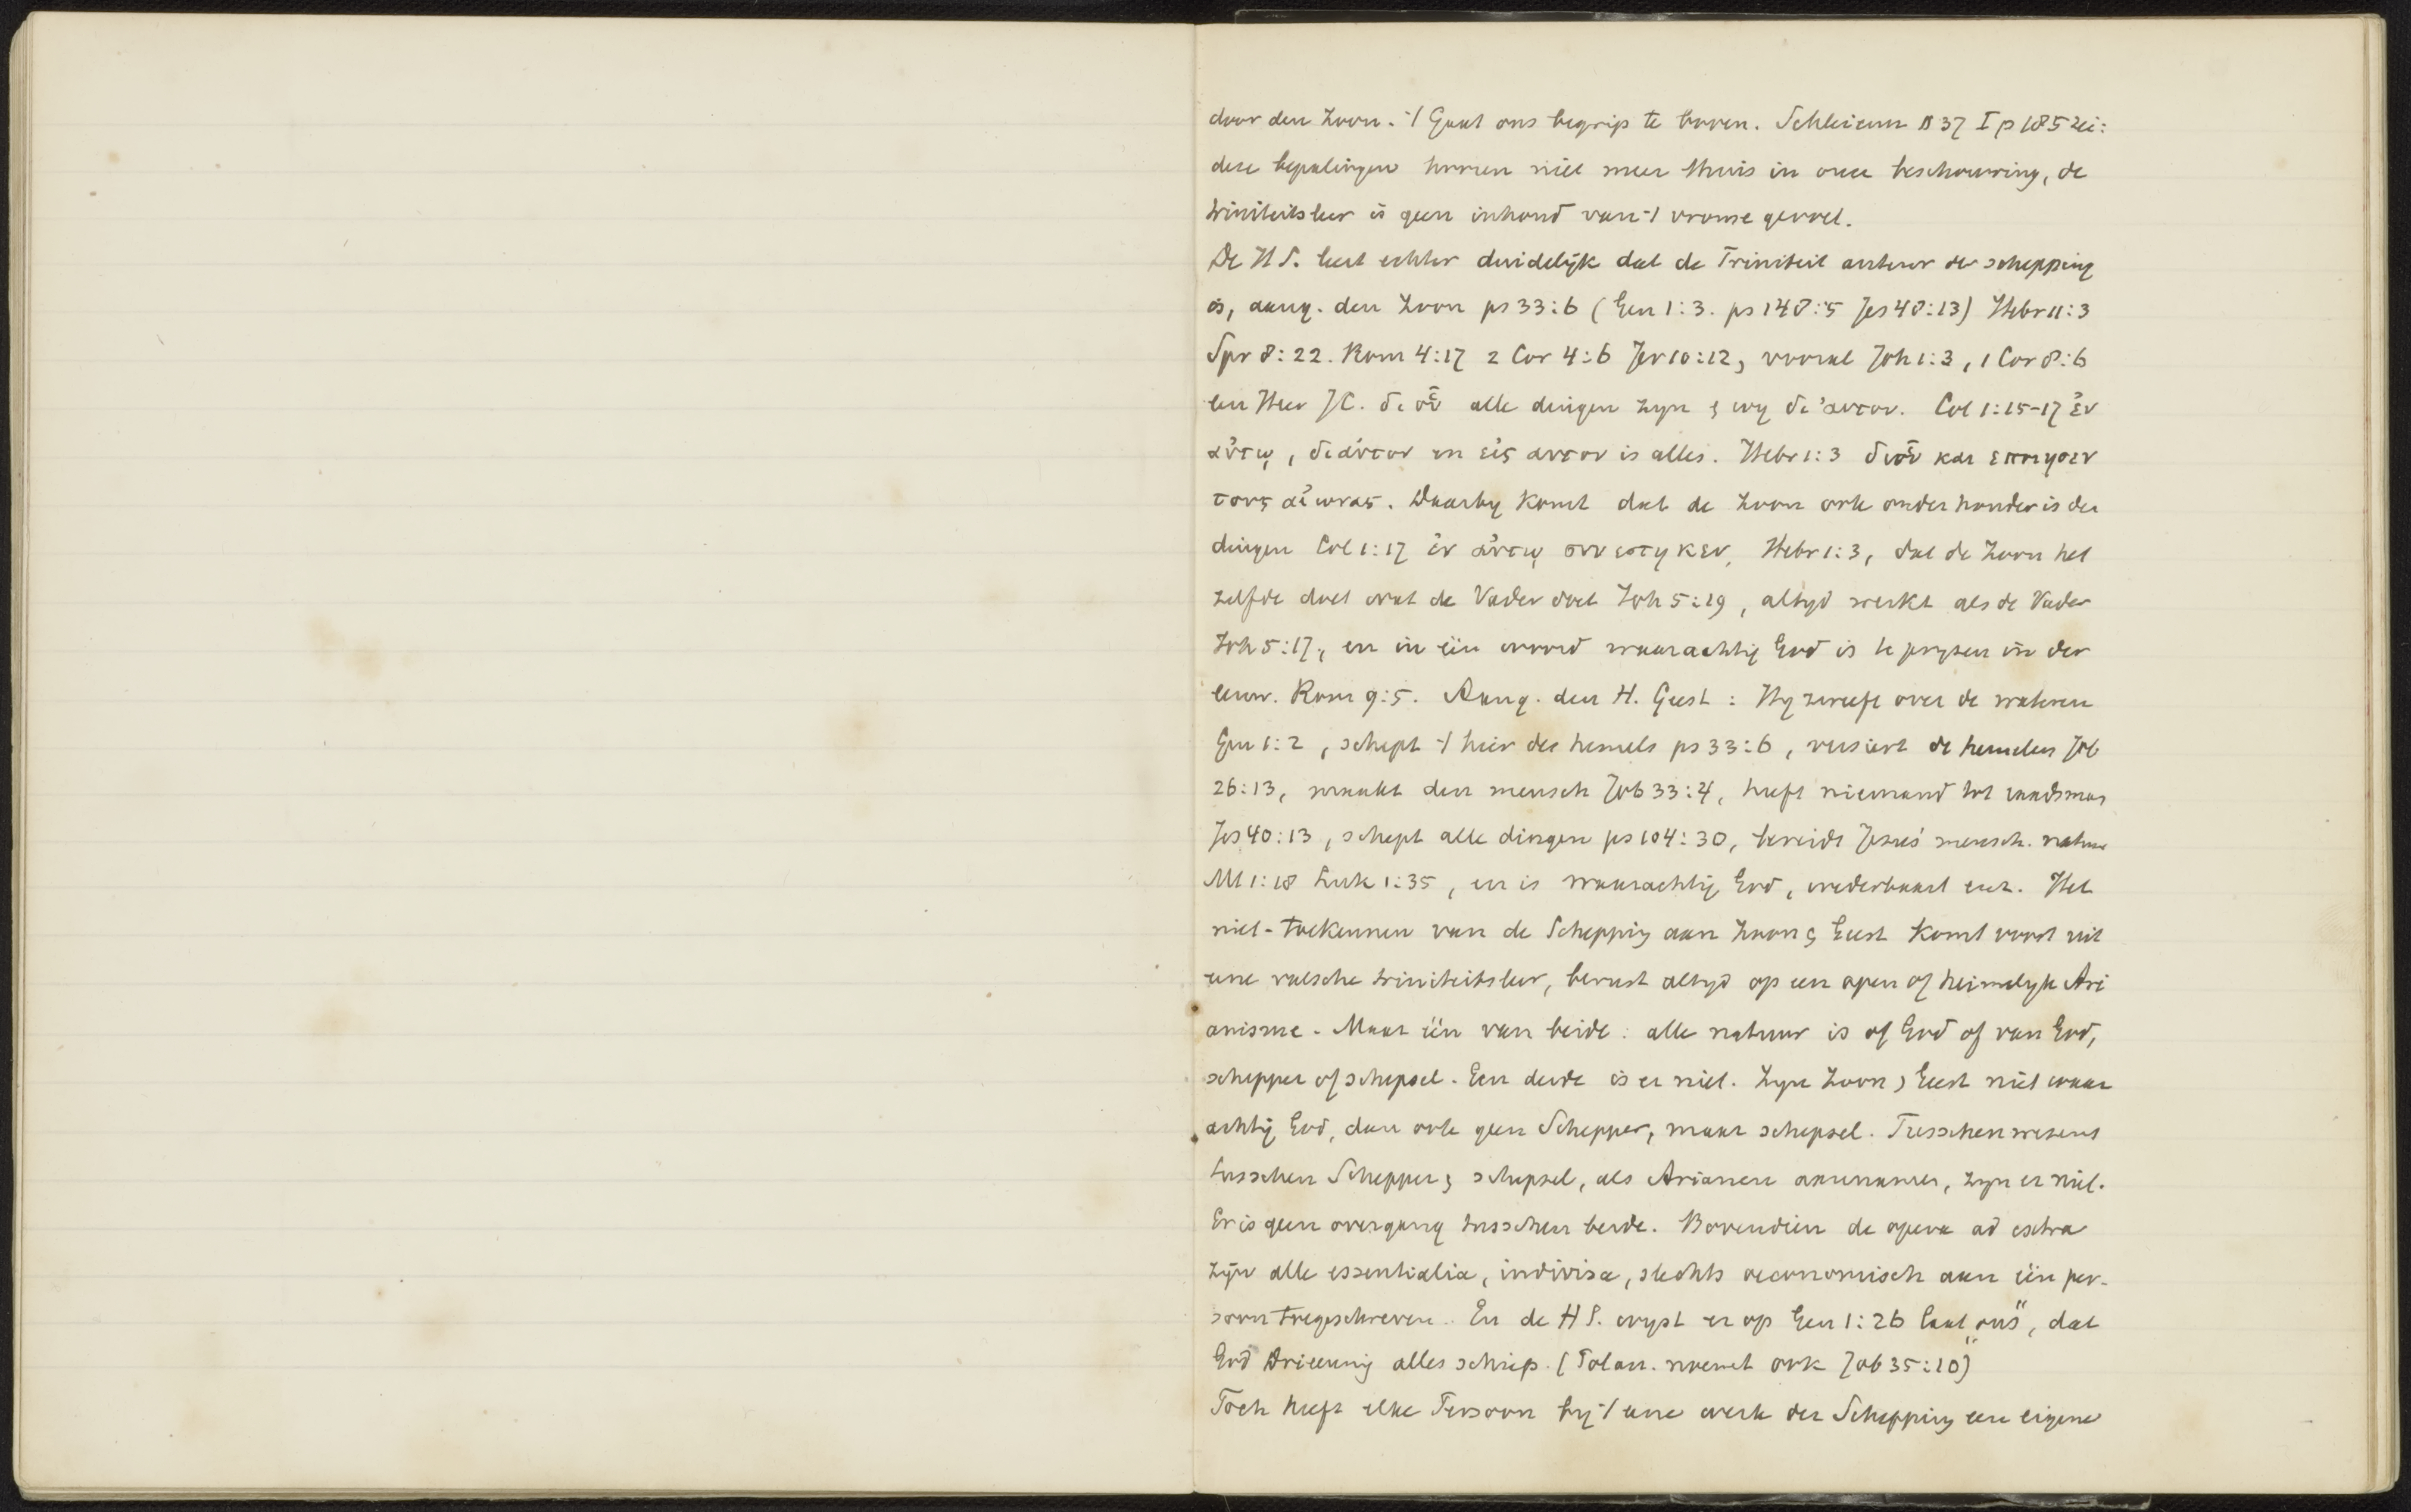 door den Zoon. 't Gaat ons begrip te boven. Schleierm § 37 I p 185 zei:
deze bepalingen hooren niet meer thuis in onze beschouwing, de
triniteitsleer is geen inhoud van 't vrome gevoel.
De H S. leert echter duidelijk dat de Triniteit auteur der schepping
is, aang. den Zoon ps 33:6 (Gen 1:3. ps 148:5 Jes 48:13) Hebr 11:3
Spr 8:22. Rom 4:17 2 Cor 4:6 Jer 10:12, vooral Joh 1:3, 1 Cor 8:6
een Heer JC. δι οὗ alle dingen zyn & wy δι' αυτου. Col 1:15-17 ἐν
αὐτῳ, δι αὐτου en εἰς αυτον is alles. Hebr 1:3 δι οὗ και εποιησεν
τους αἰωνας. Daarby komt dat de Zoon ook onderhouder is der
dingen Col 1:17 ἐν αὐτῳ συνεστηκεν, Hebr 1:3, dat de Zoon het
zelfde doet wat de Vader doet Joh 5:19, altyd werkt als de Vader
Joh 5:17, en in één woord waarachtig God is te pryzen in der
eeuw. Rom 9:5. Aang. den H. Geest: Hy zweeft over de wateren
Gen 1:2, schept 't heir des hemels ps 33:6, versiert de hemelen Job
26:13, maakt den mensch Job 33:4, heeft niemand tot raadsman
Jes 40:13, schept alle dingen ps 104:30, bereidt Jezus' mensch. natuur
Mt 1:18 Luk 1:35, en is waarachtig God, wederbaart enz. Het
niet-toekennen van de Schepping aan Zoon & Geest komt voort uit
eene valsche triniteitsleer, berust altyd op een open of heimelyk Ari
anisme. Maar één van beide: alle natuur is of God of van God,
schepper of schepsel. Een derde is er niet. Zyn Zoon & Geest niet waar
achtig God, dan ook geen Schepper, maar schepsel. Tusschenwezens
tusschen Schepper & schepsel, als Arianen aannamen, zyn er niet.
Er is geen overgang tusschen beide. Bovendien de opera ad extra
zijn alle essentialia, indivisa, slechts oeconomisch aan één per-
soon toegeschreven. En de H S. wyst er op Gen 1:26 laat "ons", dat
God Drieeenig alles schiep. (Polan. noemt ook Job 35:10)
Toch heeft elke Persoon by 't eene werk der Schepping een eigene